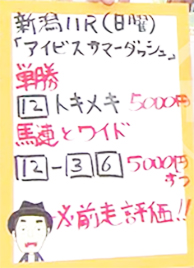 新潟11R(日曜)
「アイビスサマーダッシュ」
単勝
12 トキメキ 5000円
馬連とワイド
12-3 6 5000円
ずつ
☆前走評価!!